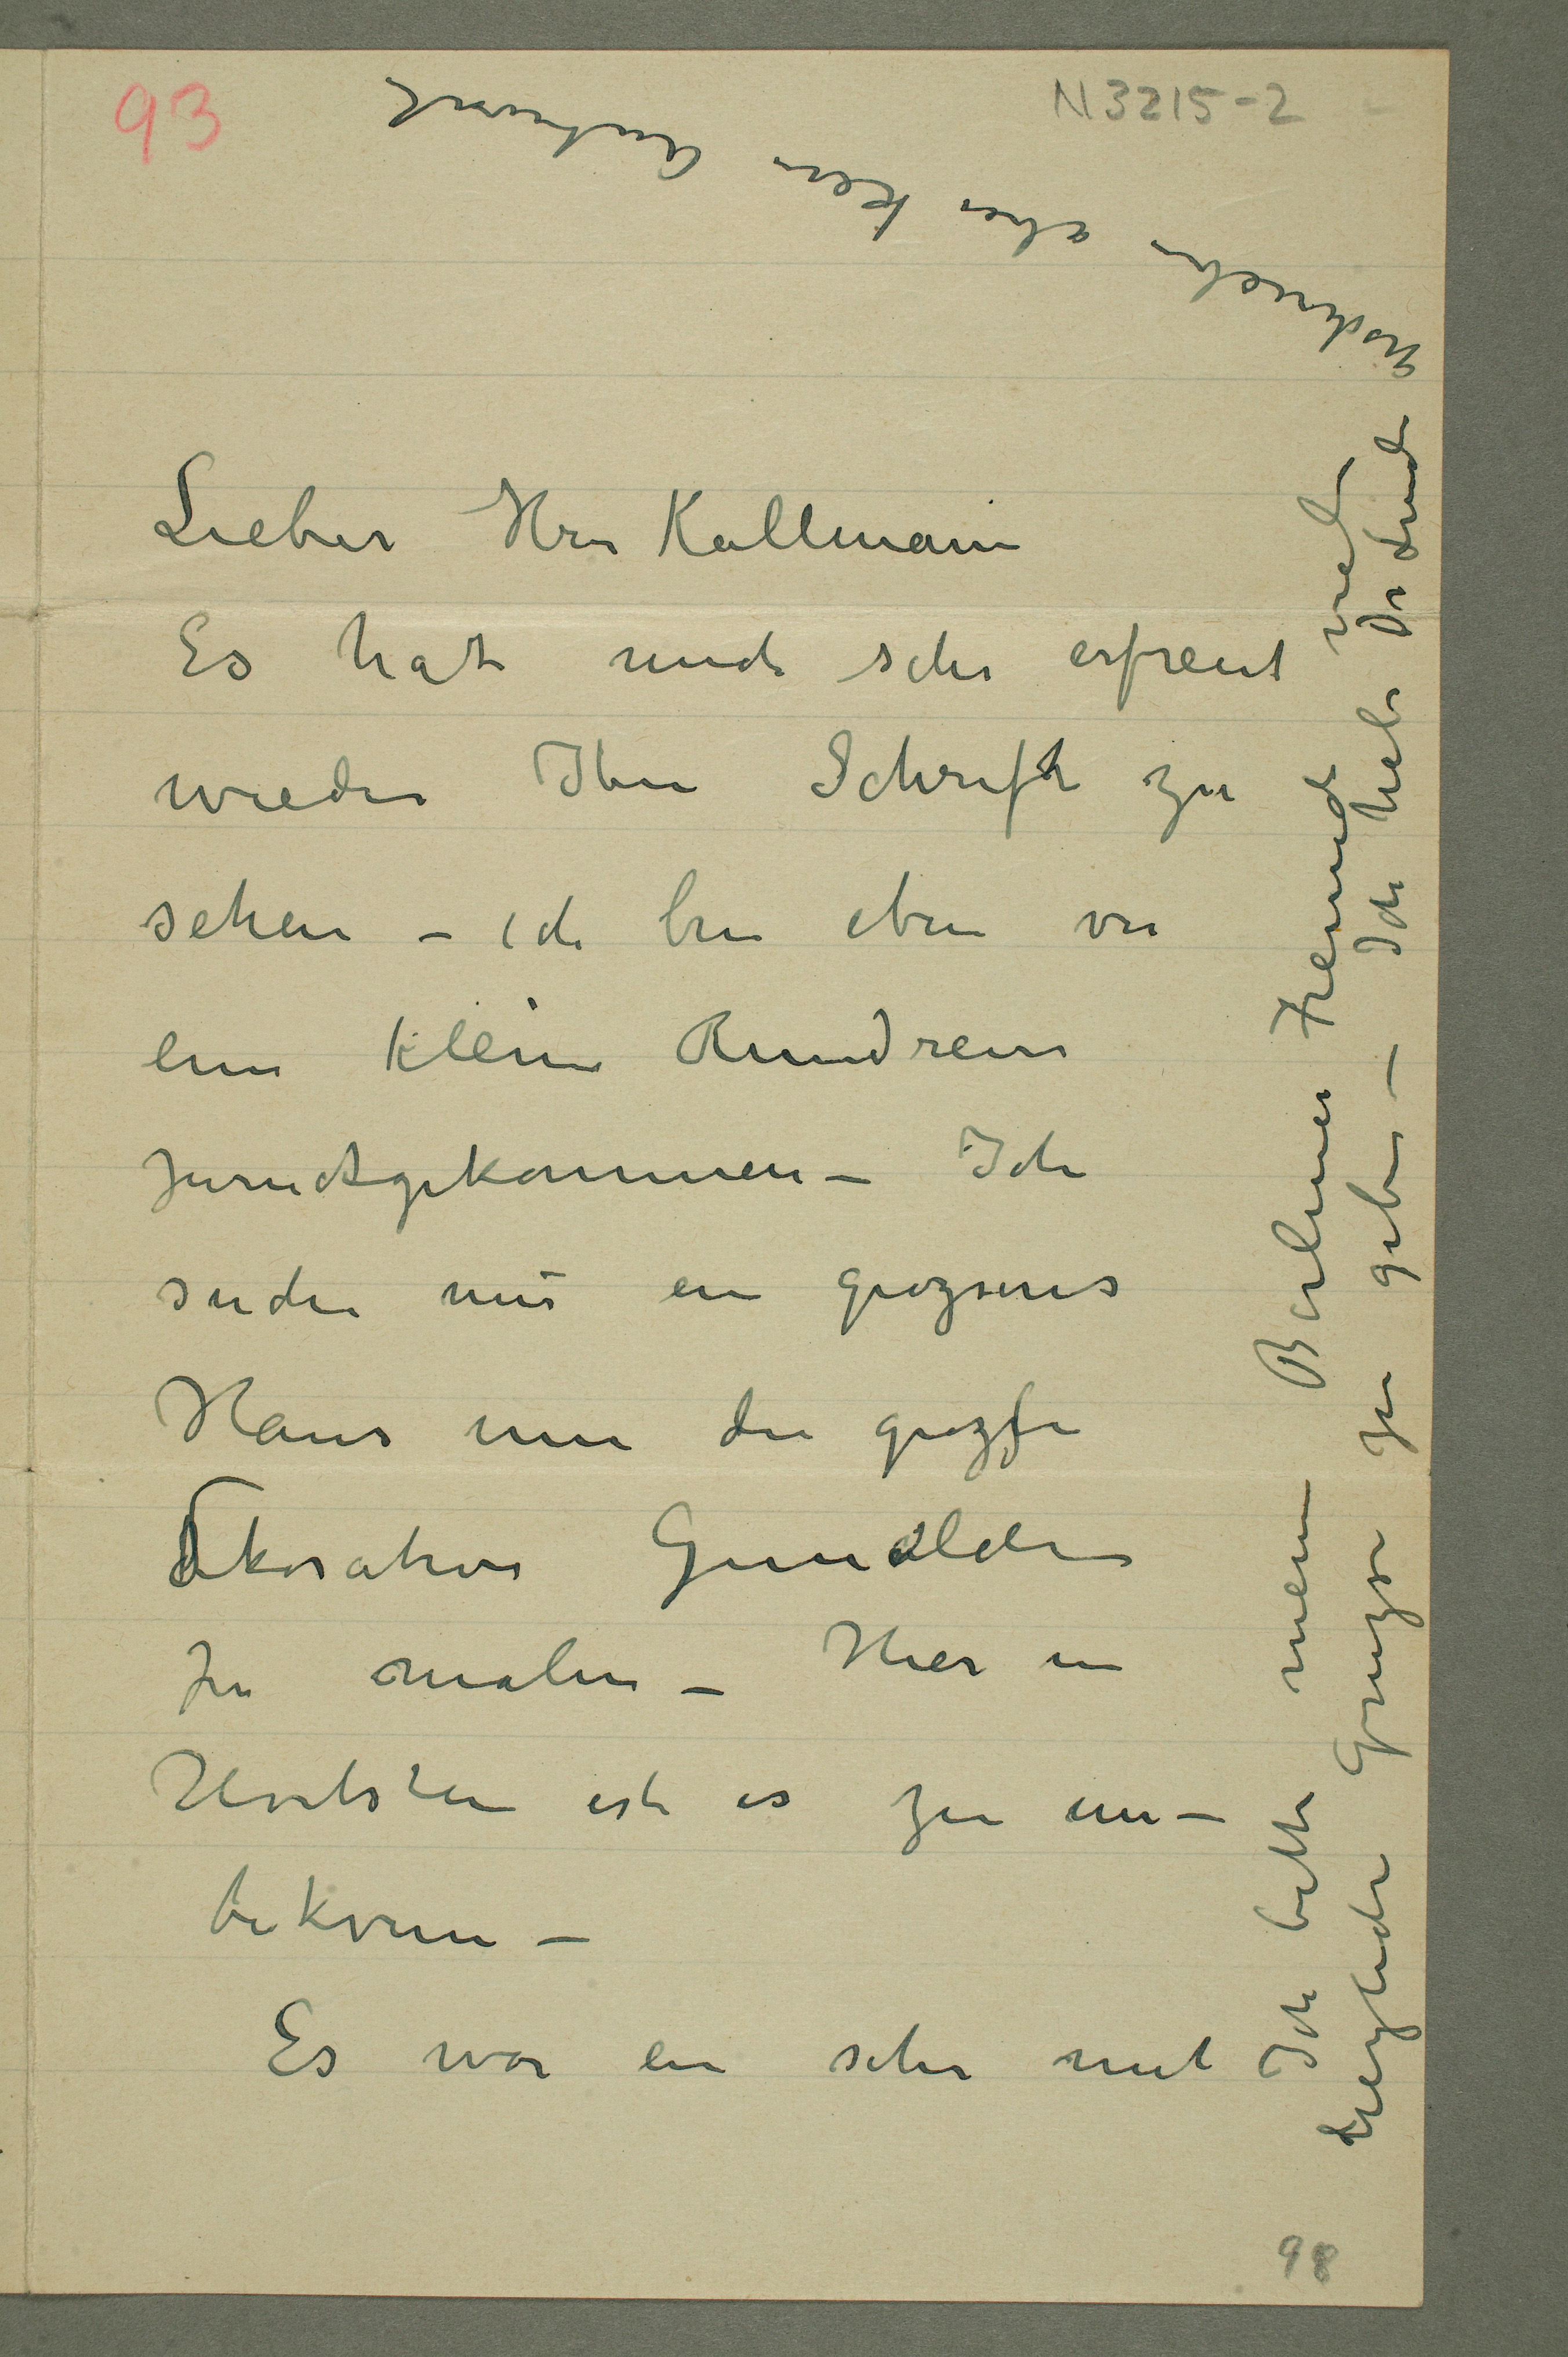 93
N 3215-2
Lieber Herr Kollmann
Es hat mich sehr erfreut
wieder Ihre Schrift zu
sehen – ich bin eben von
eine kleine Rundreise
zurückgekommen – Ich
suche nur ein grozseres
Haus um die grozse
Dekorative Gemälde
zu malen – Hier in
Hvitsten ist es zu un–
bekvem –
Es war ein sehr mit
Ich bitte meine Berliner Freunde viele
herzliche Grüzse zu geben – Ich habe Dr Linde
geschrieben aber kein Antwort
98